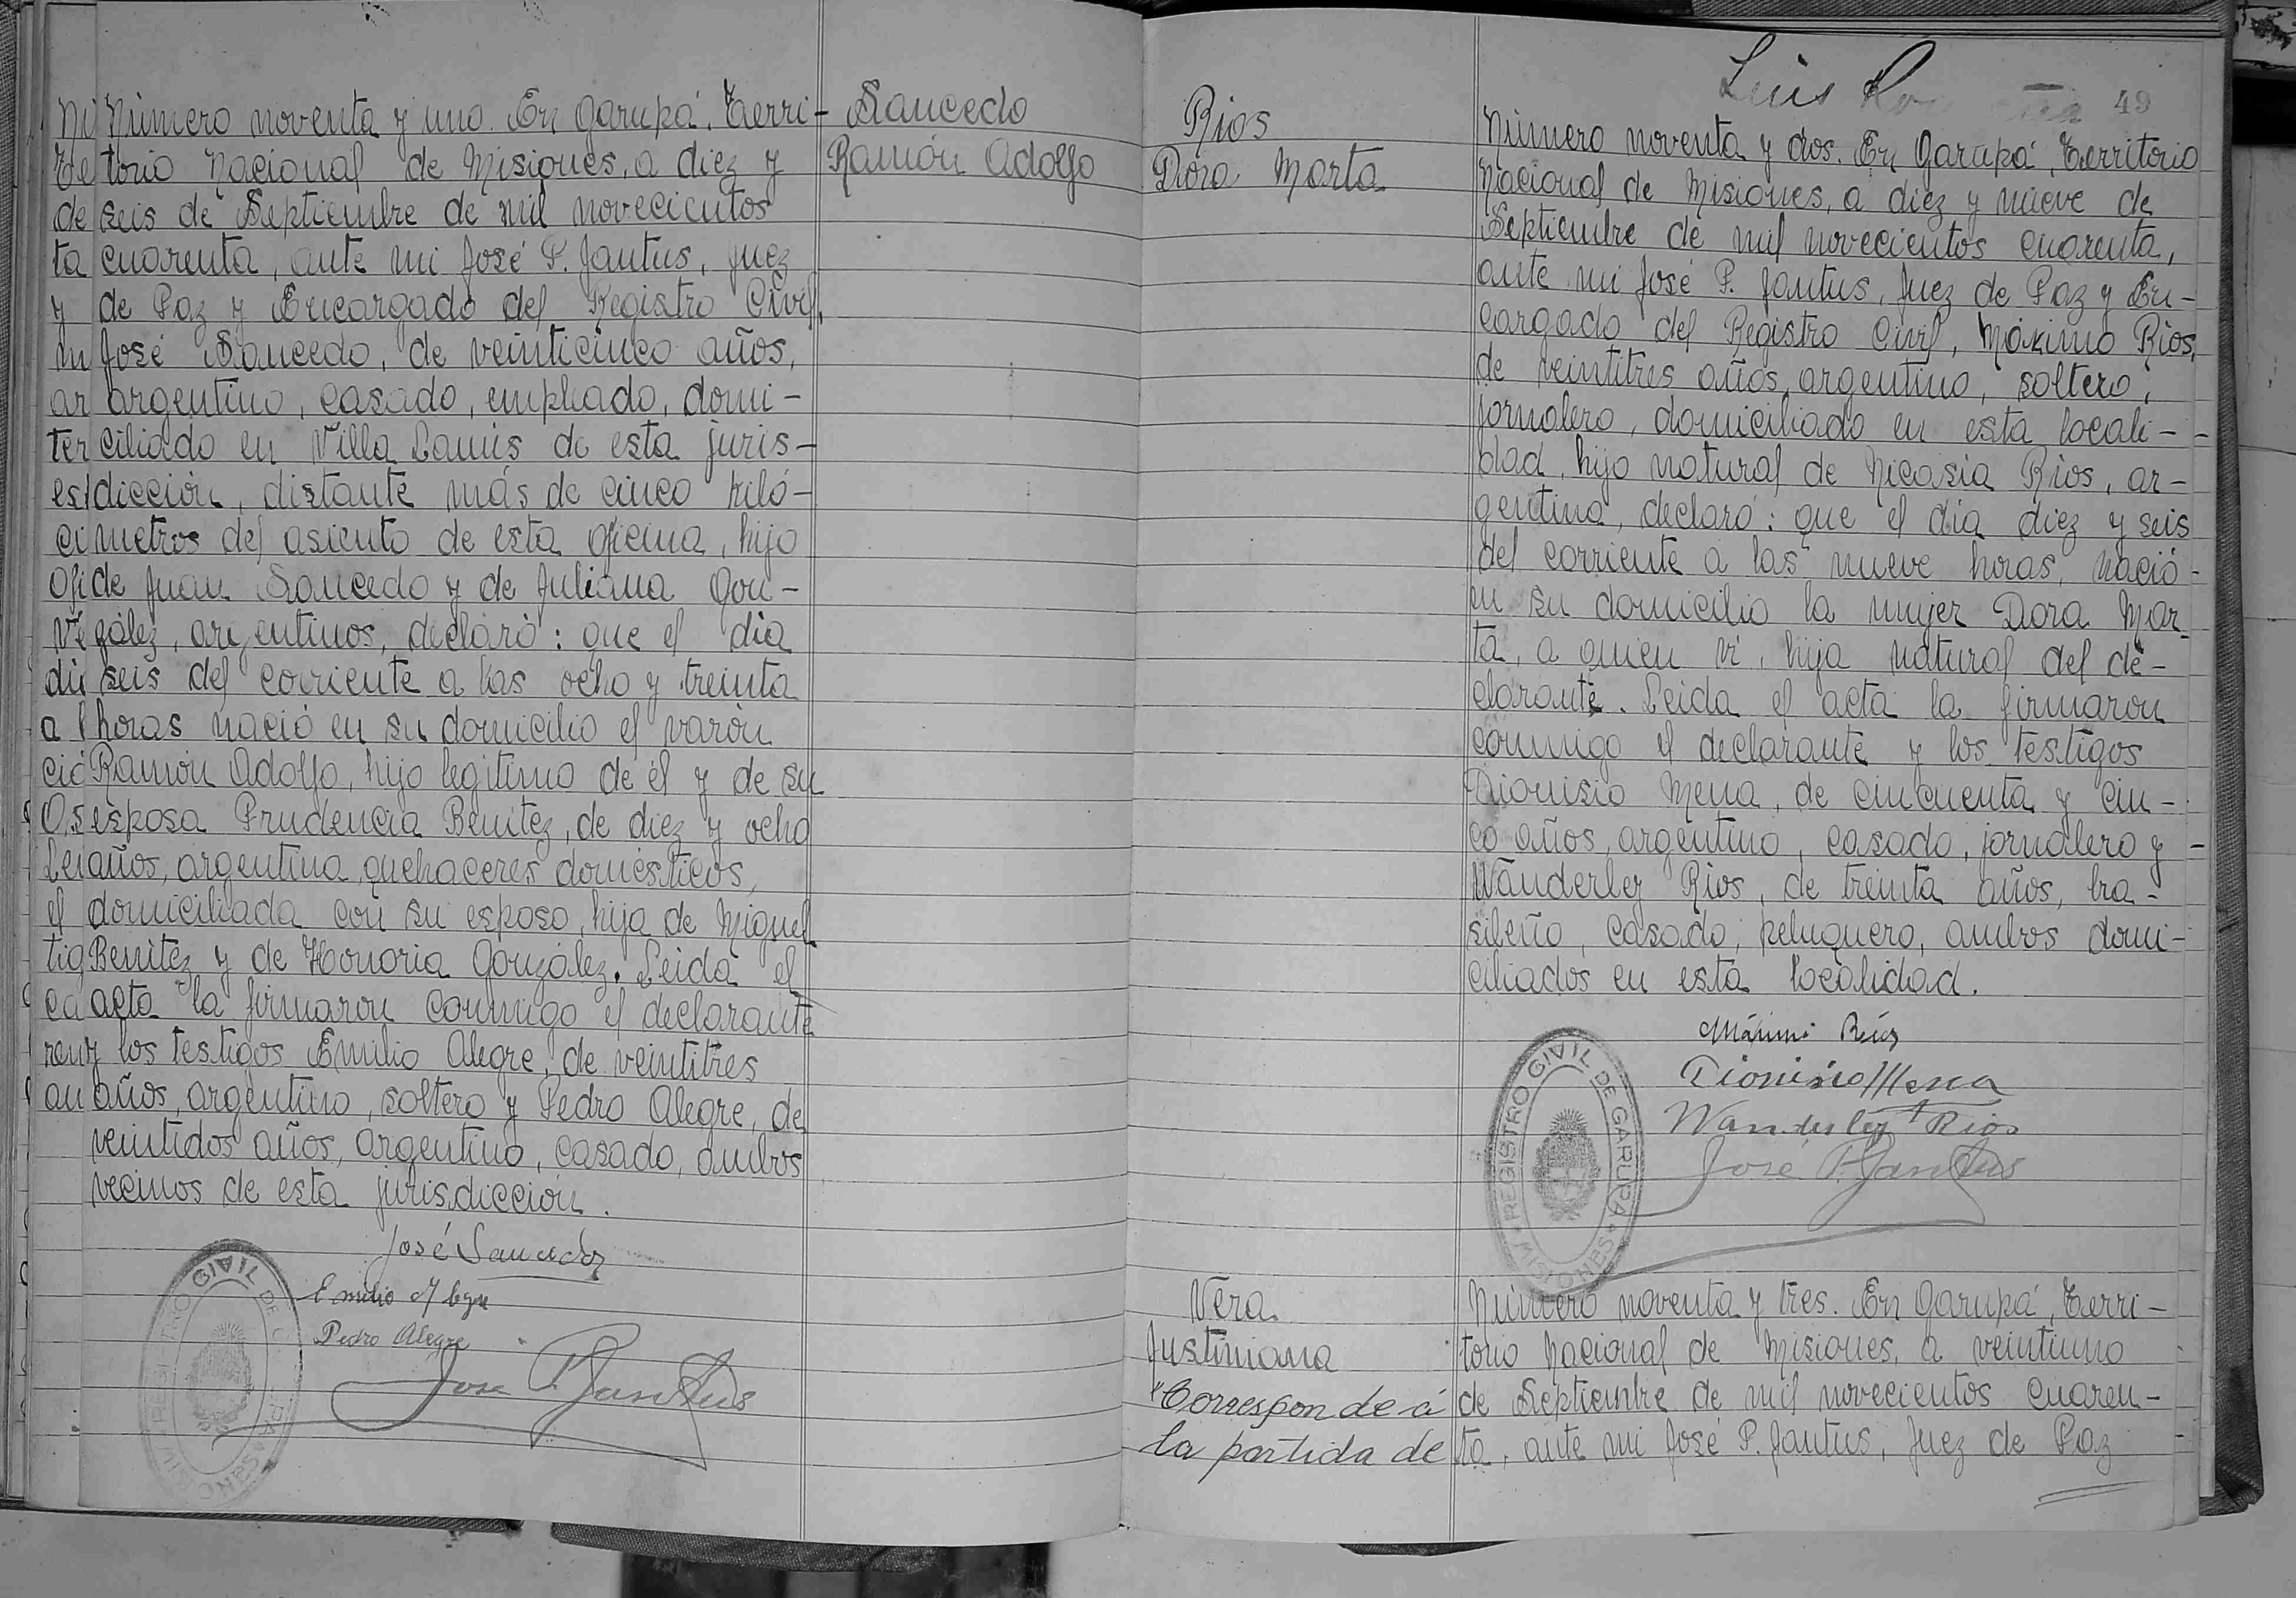 Número noventa y uno. En Garupá, Terri-
torio Nacional de Misiones, a diez y
seis de Septiembre de mil novecientos
cuarenta, ante mi José P. Jantus, Juez
de Paz y Encargado del Registro Civil,
José Saucedo, de veinticinco años,
argentino, casado, empleado, domi-
ciliado en Villa Lanús de esta juris-
dicción, distante más de cinco kiló-
metros del asiento de esta oficina, hijo
de Juan Saucedo y de Juliana Gon-
zález, argentinos, declaró: que el dia
seis del corriente a las ocho y treinta
horas nació en su domicilio el varón
Ramón Adolfo, hijo legitimo de él y de su
esposa Prudencia Benitez, de diez y ocho
años, argentina, quehaceres domésticos,
domiciliada con su esposo, hija de Miguel
Benitez y de Honoria González. Leida el
acta la firmaron conmigo el declarante
y los testigos Emilio Alegre, de veintitres
años, argentino, soltero y Pedro Alegre, de
veintidos años, argentino, casado, ambos
vecinos de esta jurisdicción.
José Saucedo
Emilio Alegre
Pedro Alegre
José P. Jantus
Saucedo
Ramón Adolfo
Rios
Dora Marta
Luis
49
Número noventa y dos. En Garupá, Territorio
Nacional de Misiones, a diez y nueve de
Septiembre de mil novecientos cuarenta,
ante mi José P. Jantus, Juez de Paz y En-
cargado del Registro Civil, Máximo Rios,
de veintitres años, argentino, soltero,
jornalero, domiciliado en esta locali-
dad, hijo natural de Nicasia Rios, ar-
gentina, declaró: que el dia diez y seis
del corriente a las nueve horas, nació
en su domicilio la mujer Dora Mar-
ta, a quien vi, hija natural del de-
clarante. Leida el acta la firmaron
conmigo el declarante y los testigos
Dionisio Mena, de cincuenta y cin-
co años, argentino, casado, jornalero y
Wanderley Rios, de treinta años, bra-
sileño, casado, peluquero, ambos domi-
ciliados en esta localidad.
Máximo Rios
Dionisio Mena
Wanderley Rios
José P. Jantus
REGISTRO CIVIL DE GARUPA
MISIONES
Vera
Justiniana
"Corresponde á
la partida de
Número noventa y tres. En Garupá, Terri-
torio Nacional de Misiones, a veintiuno
de Septiembre de mil novecientos cuaren-
ta, ante mi José P. Jantus, Juez de Paz